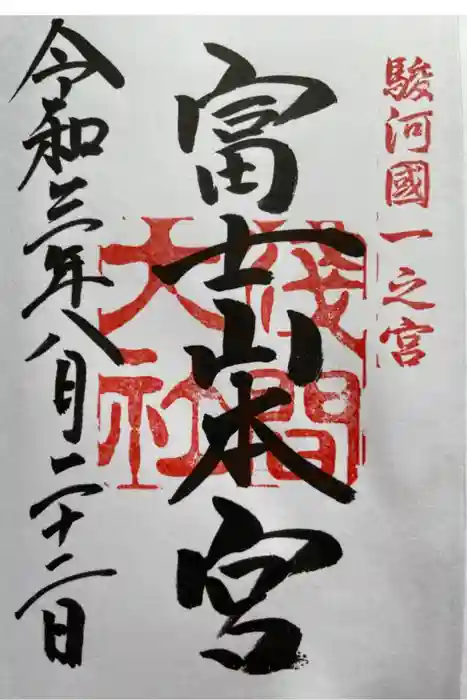 駿河國一之宮
富士山本宮
浅間大社
令和三年八月二十二日